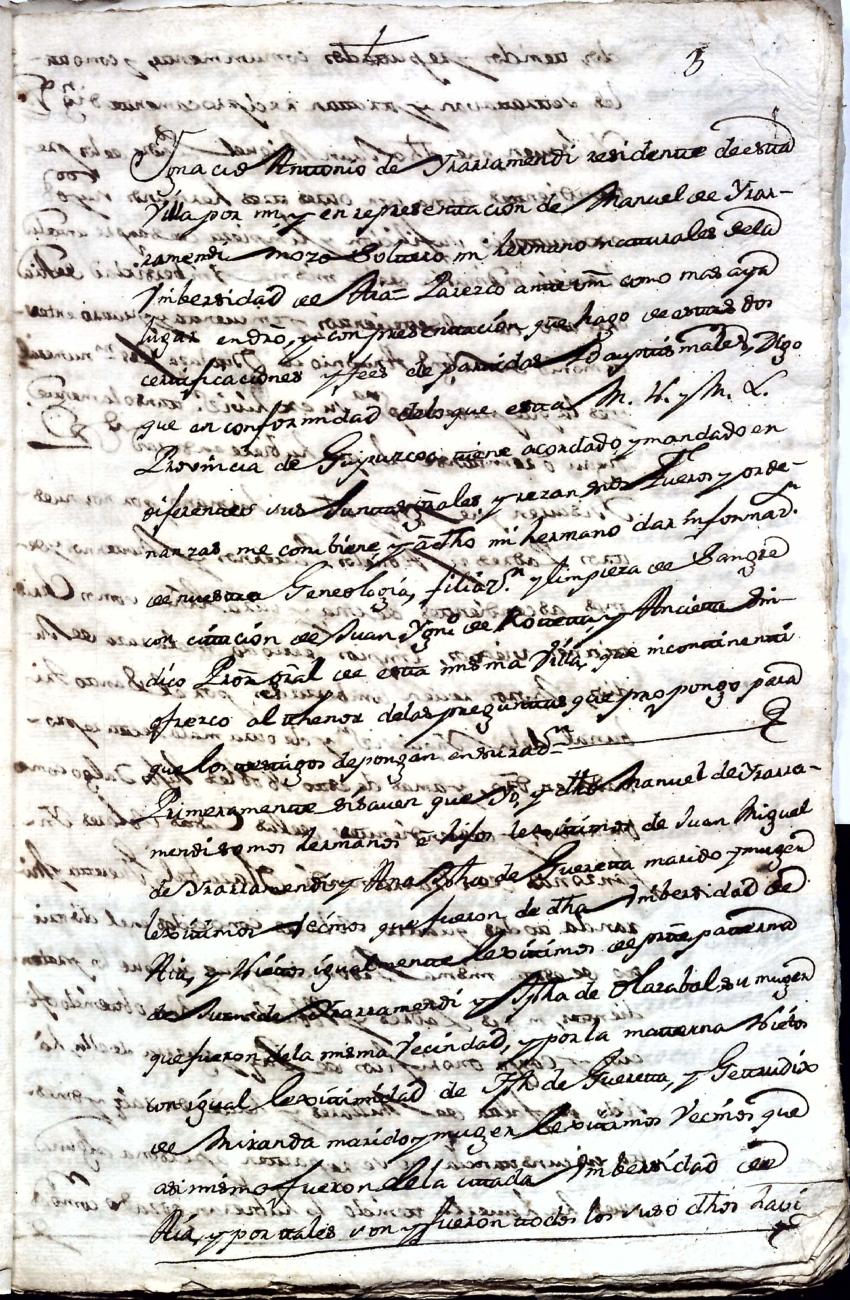 3
Ygnacio Antonio de Yrarramendi residente de esta
Villa por mi, y en representacion de Manuel de Yrar-
ramendi mozo soltero mi hermano naturales de la
Vnibersidad de Parezco ante Vm como mas aya
lugar en dro, y con presentación que hago de estas dos
certificaciones y fees de partidas Baptismales, Digo
que en conformidad de lo que esta M. N. y M. L.
Provincia de Guipuzcoa tiene acordado y mandado en
diferentes sus Juntas grales, y rezan sus Fueros y orde-
nanzas me combiene y a dho mi hermano dar informaz.n
de nuestra Geneología, filiaz.n y limpieza de Sangre
con citación de Juan Ygn.o de y Ancieta Sin-
dico Pror gral de esta misma Villa, que incontinenti
ofrezco al thenor de las preguntas que propongo para
que los testigos depongan en su raz.n
Primeramente si sauen que Yo, y dho Manuel de Yrarra-
mendi somos hermanos e hijos lexitimos de Juan Miguel
de Yrarramendi y Ana Jpha de Gueretta marido y muger
lexitimos Vecinos que fueron de dha Vnibersidad de
y Nietos igualmente lexitimos de parte paterna
de Juan de Yrarramendi y Jpha de Olazabal su muger
que fueron de la misma Vecindad, y por la materna Nietos
con igual lexitimidad de Jph de Gueretta, y Gertrudix
de Miranda marido y muger lexitimos Vecinos que
asimismo fueron de la citada Vnibersidad de
y por tales son y fueron todos los suso dhos havi